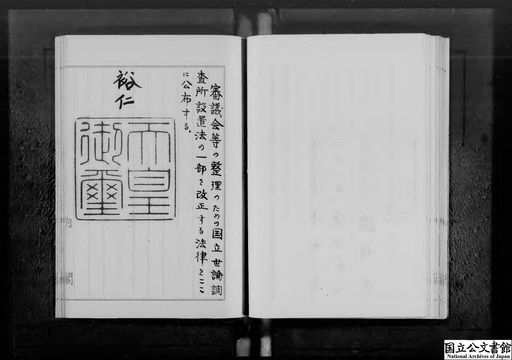 審議会等の整理のための国立世論調
査所設置法の一部を改正する法律をここ
に公布する。
裕仁
天皇
御璽
国立公文書館
National Archives of Japan